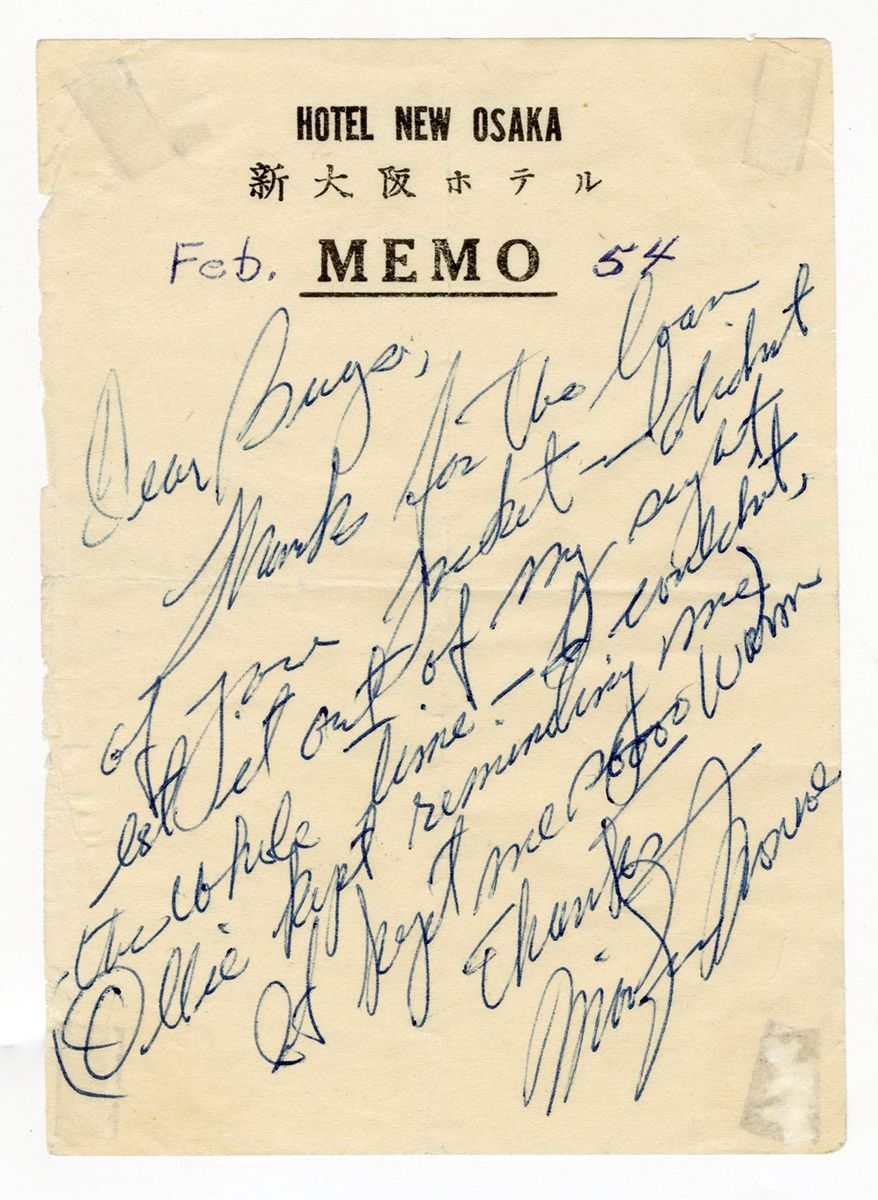 HOTEL NEW OSAKA
新大阪ホテル
Feb. MEMO 54
Dear Bugs,
Thanks for the loan
of your jacket – I didn't
let it out of my sight
the whole time – I couldn't,
(Ollie kept reminding me)
It kept me sooooo warm
Thanks
Monroe